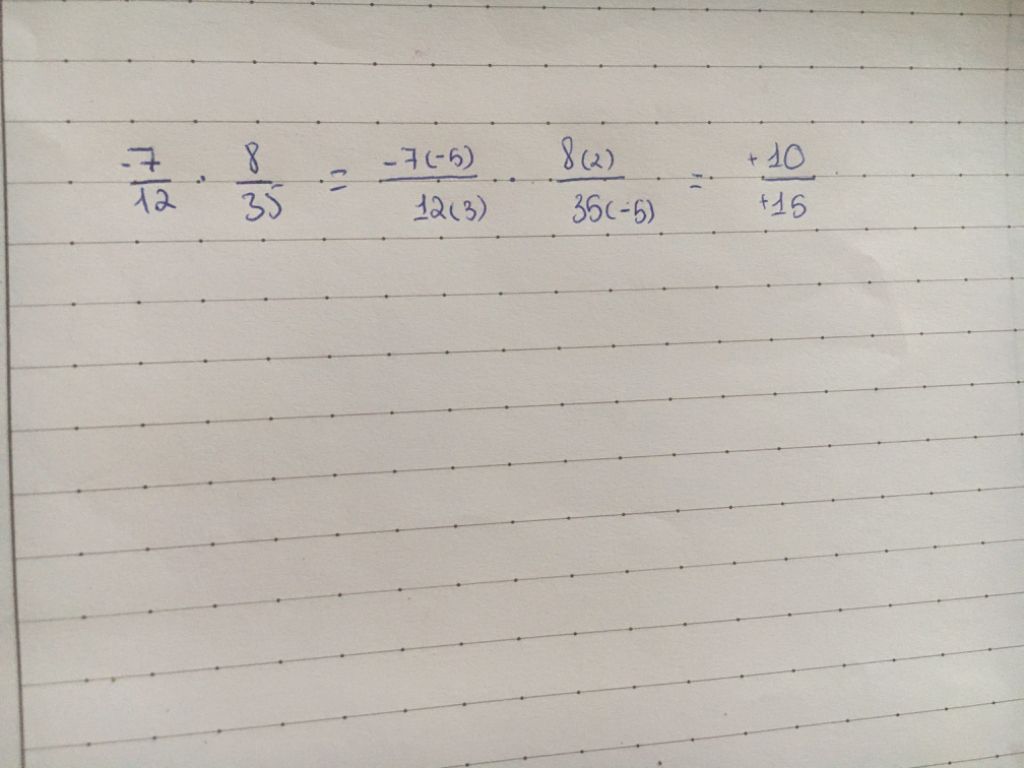 -7/12 · 8/35 = -7(-5)/12(3) · 8(2)/35(-5) = +10/+15